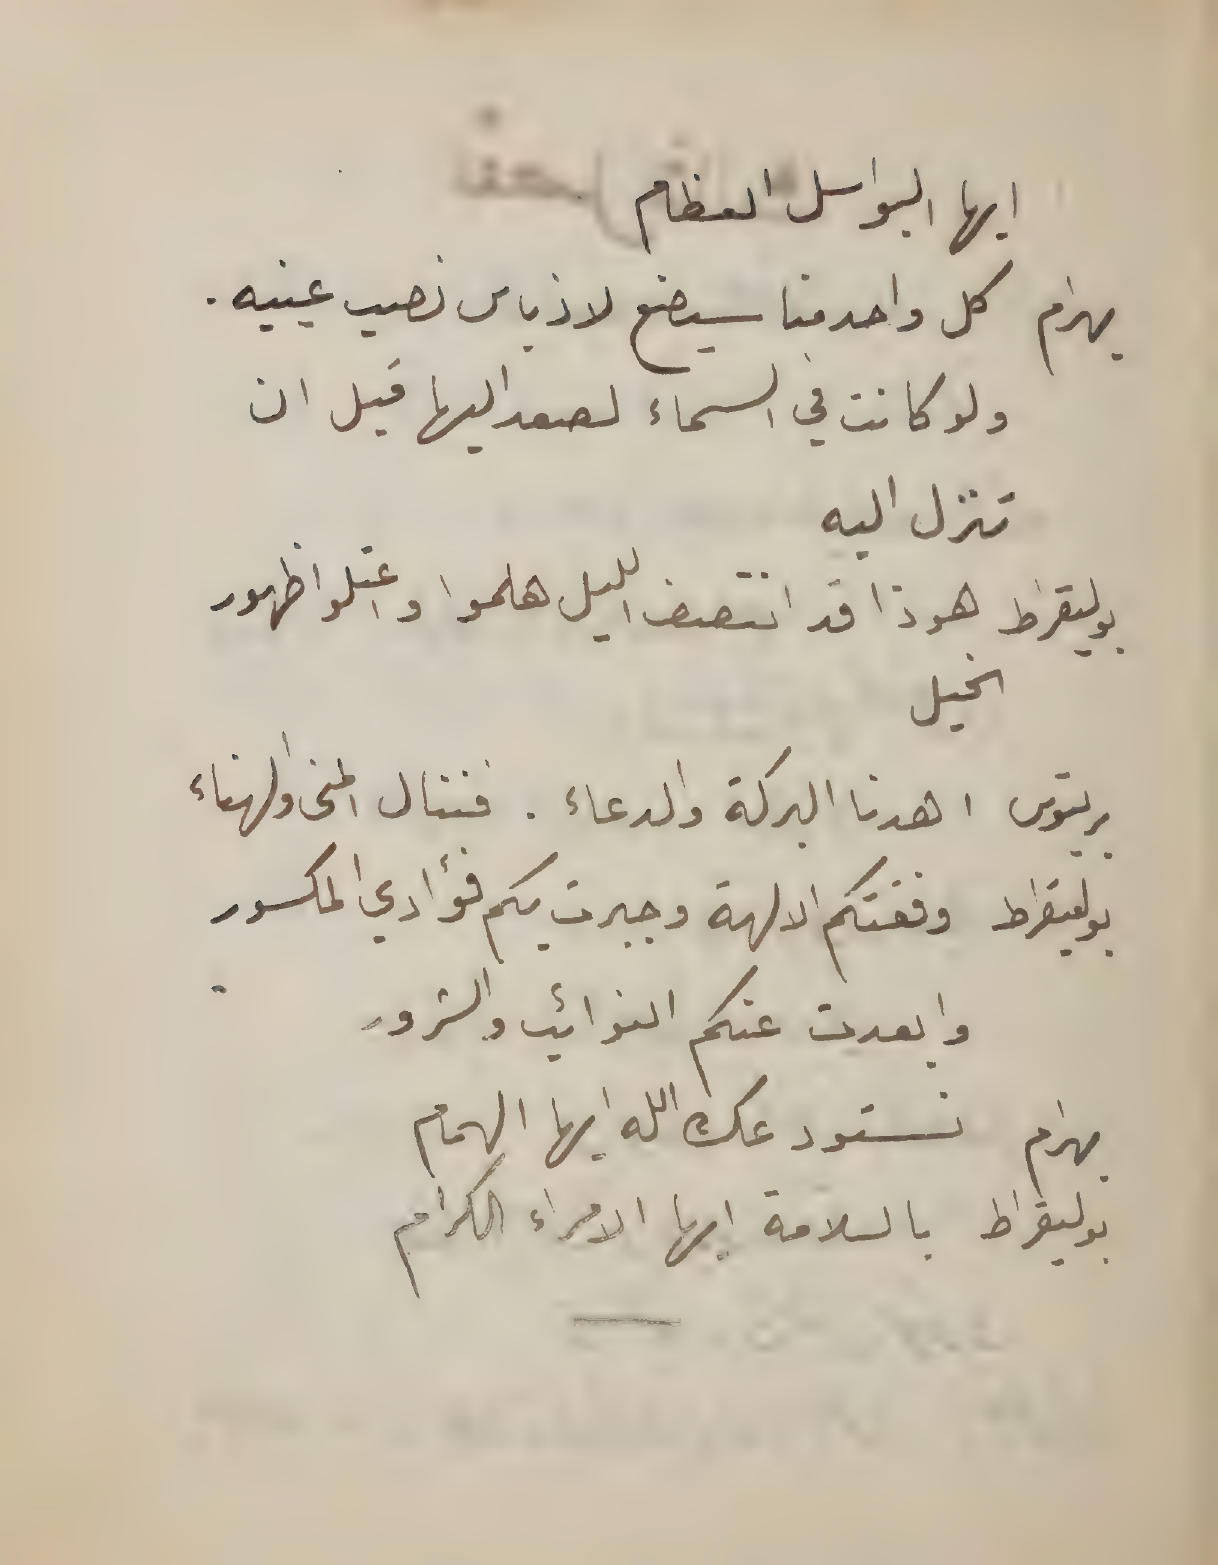 ايها البواسل العظام
بهرام كل واحد منا سيضع لاذياس نصيب عينيه .
ولو كانت في السماء لصعد اليها قبل ان
تنزل اليه
بوليقراط هوذا قد انتصف الليل هلموا واعتلوا ظهور
الخيل
بريتوس اهدنا البركة والدعاء . فننال المنى والهناء
بوليقراط وفقتكم الالهة وجبرت بكم فؤادي المكسور
وابعدت عنكم النوائب والشرور
بهرام نستودعك الله ايها الهمام
بوليقراط بالسلامة ايها الامراء الكرام